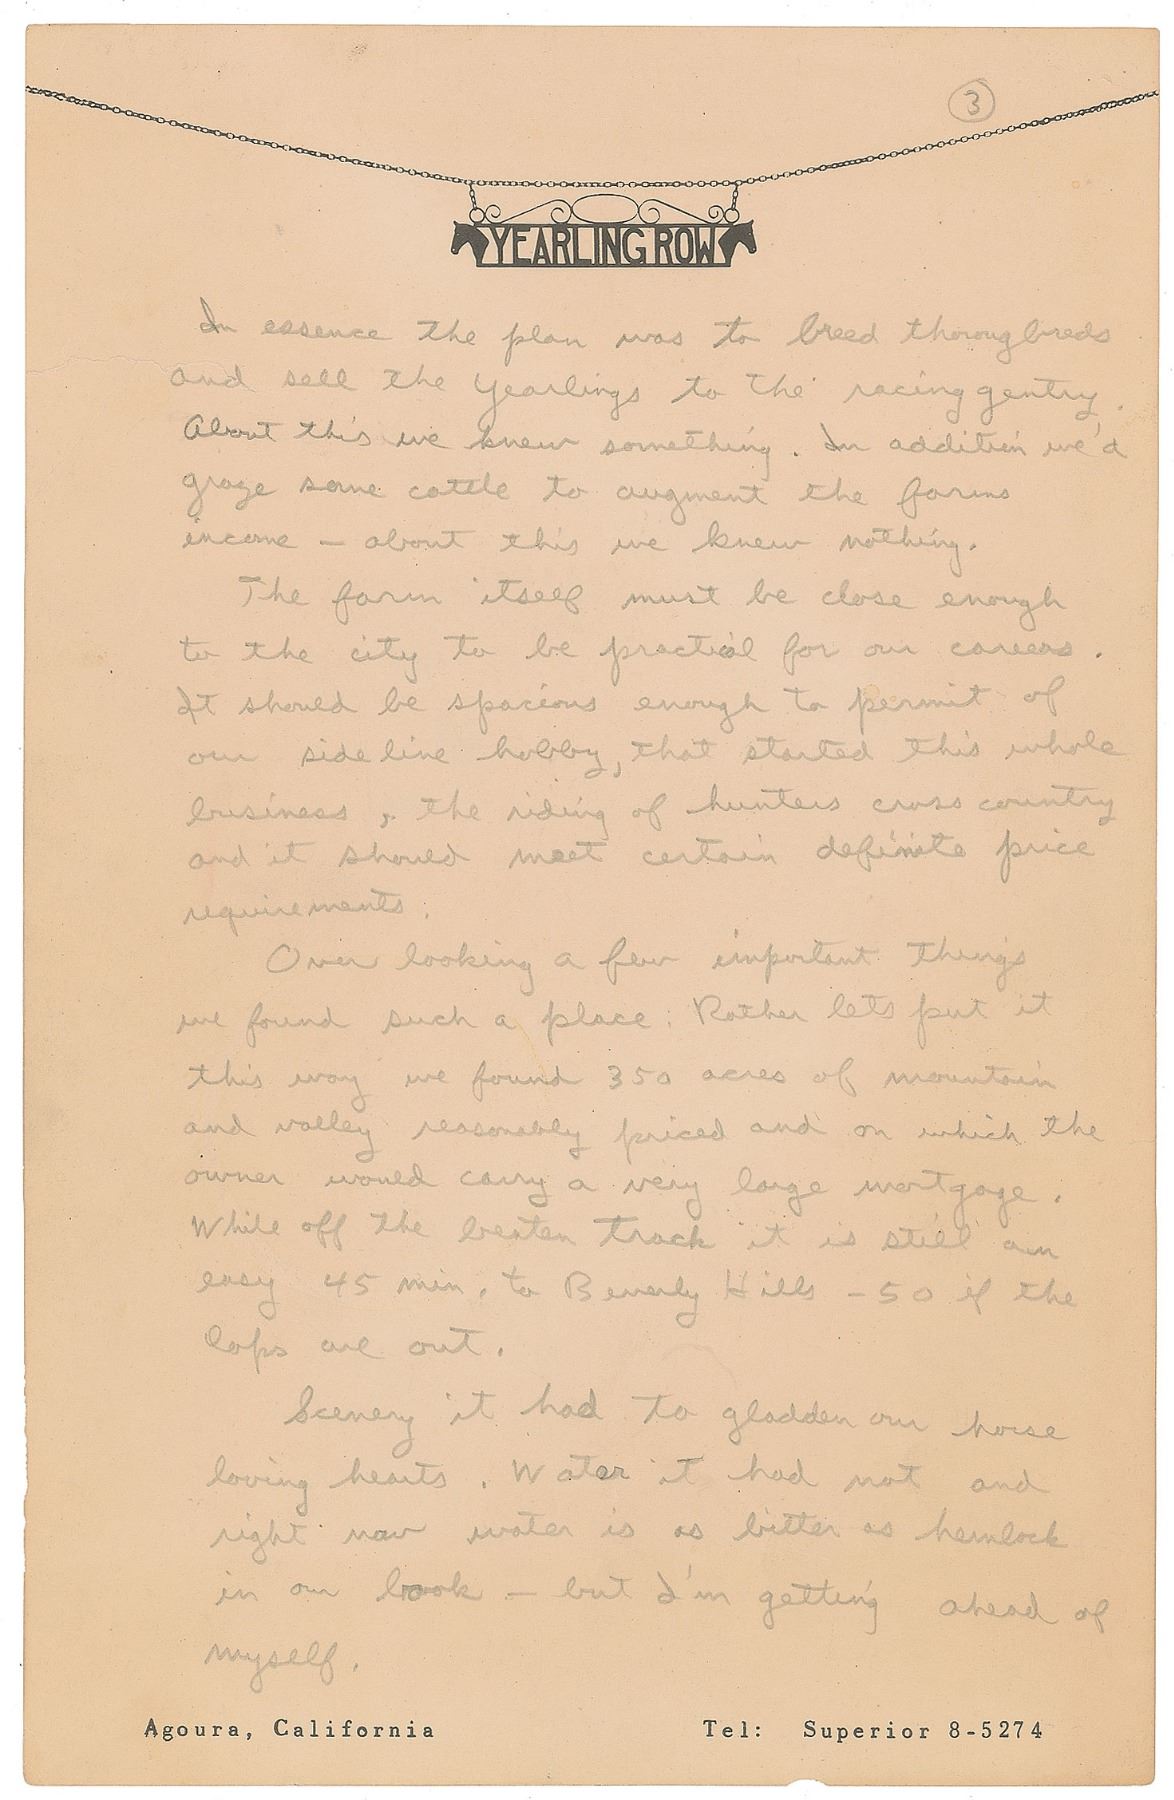 3
YEARLING ROW
In essence the plan was to breed thorougbreds
and sell the yearlings to the racing gentry.
About this we knew something. In addition we'd
graze some cattle to augment the farms
income – about this we knew nothing.
The farm itself must be close enough
to the city to be practical for our careers.
It should be spacious enough to permit of
our side line hobby, that started this whole
business, the riding of hunters cross country
and it should meet certain definite price
requirements.
Over looking a few important things
we found such a place. Rather lets put it
this way we found 350 acres of mountain
and valley reasonably priced and on which the
owner would carry a very large mortgage.
While off the beaten track it is still an
easy 45 min. to Beverly Hills – 50 if the
cops are out.
Scenery it had to gladden our horse
loving hearts. Water it had not and
right now water is as bitter as hemlock
in our book – but I'm getting ahead of
myself.
Agoura, California Tel: Superior 8-5274